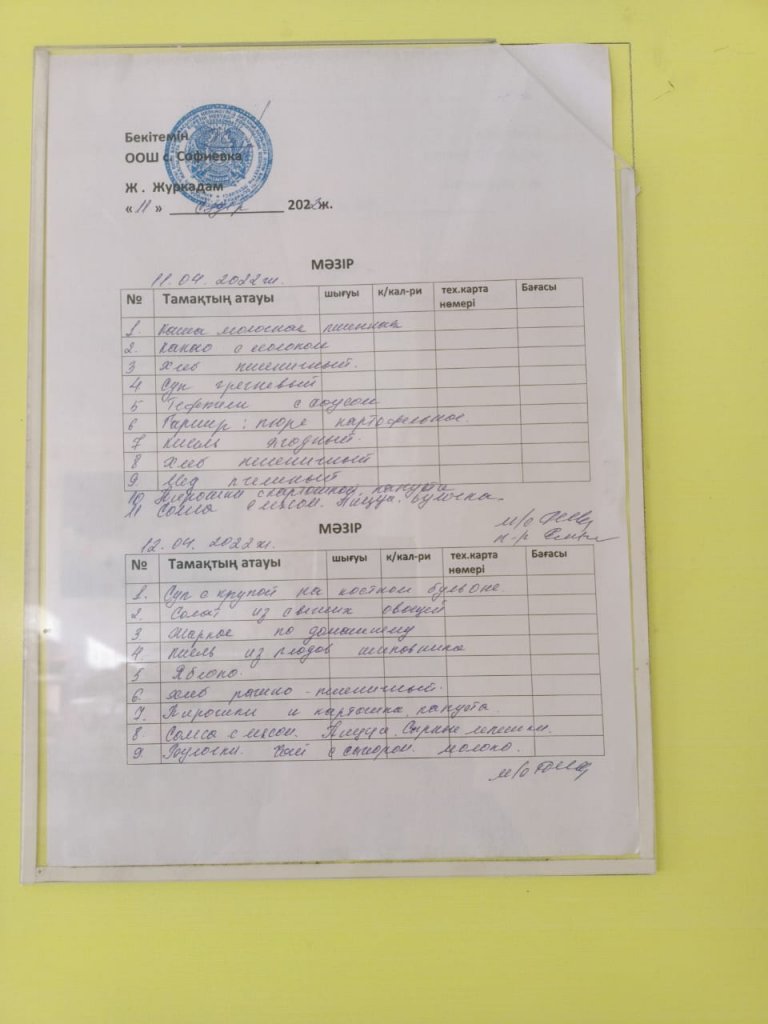 Бекітемін
ООШ с. Софиевка
Ж . Журкадам
« 11 » сәуір 2022 ж.
МӘЗІР
11. 04. 2022 ж.
№ Тамақтың атауы шығуы к/кал-ри тех.карта нөмері Бағасы
1. Каша молочная пшенична
2. Какао с молоком
3 Хлеб пшеничный.
4 Суп гречневый
5 Тефтели с соусом
6 Гарнир: пюре картофельное.
7 Кисель ягодный.
8 Хлеб пшеничный
9. Мед пчелиный
10 Пирошки с картошкой, капуста
11 Сомса с мясом. Пицца. Булочка.
м/с
МӘЗІР
12. 04. 2022 ж.
№ Тамақтың атауы шығуы к/кал-ри тех.карта нөмері Бағасы
1. Суп с крупой на костном бульоне.
2. Солат из свежих овощей
3 Жаркое по домашнему
4. Кисель из плодов шиповника
5 Яблоко.
6. Хлеб ржано - пшеничный.
7. Пирошки и картошка, капуста.
8 Сомса с мясом. Пицца. Сырные лепешки.
9 Булочки. Чай с сахором. молоко.
м/с